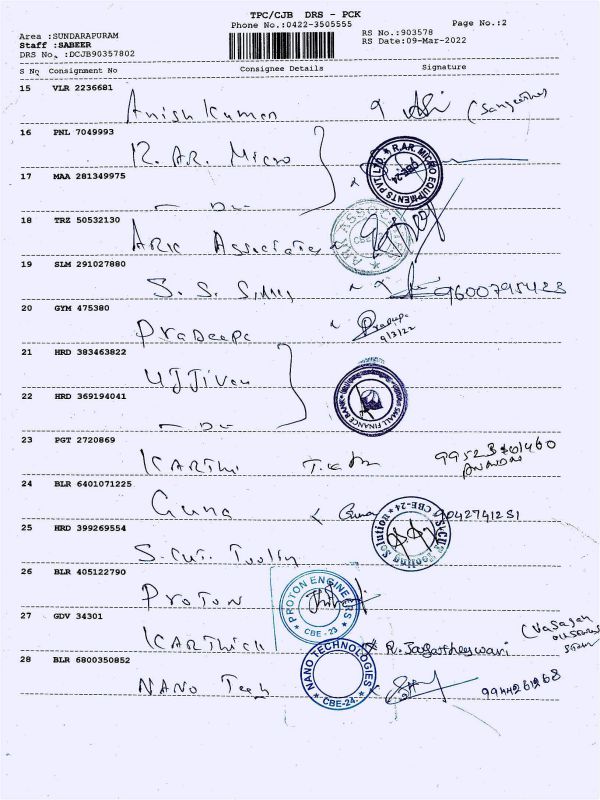 TPC/CJB DRS - PCK
Phone No.:0422-3505555
Page No.:2
Area :SUNDARAPURAM
RS No.:903578
Staff :SABEER
RS Date:09-Mar-2022
DRS No. :DCJB90357802
S No Consignment No Consignee Details Signature
15 VLR 2236681
Anish Kumar
16 PNL 7049993
R. AR. Micro
R.AR. MICRO EQUIPMENTS PVT LTD.
CBE-24
17 MAA 281349975
— Do —
18 TRZ 50532130
ARK Associates
19 SLM 291027880
S. S.
9600795423
20 GYM 475380
Pradeepa
9/3/22
21 HRD 383463822
Ujjivan
SMALL FINANCE BANK
22 HRD 369194041
— Do —
23 PGT 2720869
KARThi
24 BLR 6401071225
Guna Guna 9042741251
CBE-24
25 HRD 399269554
S.Cut Toolin
Tooling Solution
26 BLR 405122790
Proton
PROTON ENGINEERS
CBE - 23
27 GDV 34301
KARThick R. Jagatheswari
28 BLR 6800350852
NANO Tech
NANO TECHNOLOGIES
CBE-24.